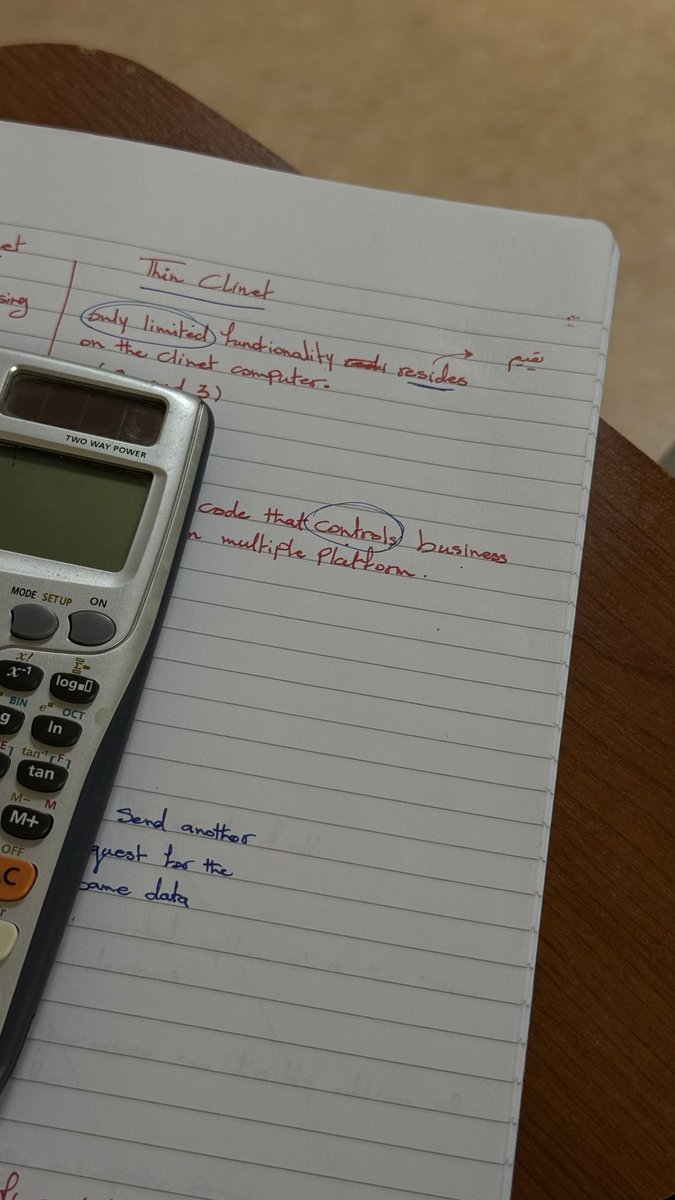 Thin Clinet
only limited functionality resides
on the clinet computer.
تقيم
3)
code that controls business
multiple Platform.
TWO WAY POWER
MODE SETUP ON
x! 
x⁻¹ log
BIN e OCT
ln
tan⁻¹ F
tan
M- M
M+
OFF
Send another
quest for the
same data